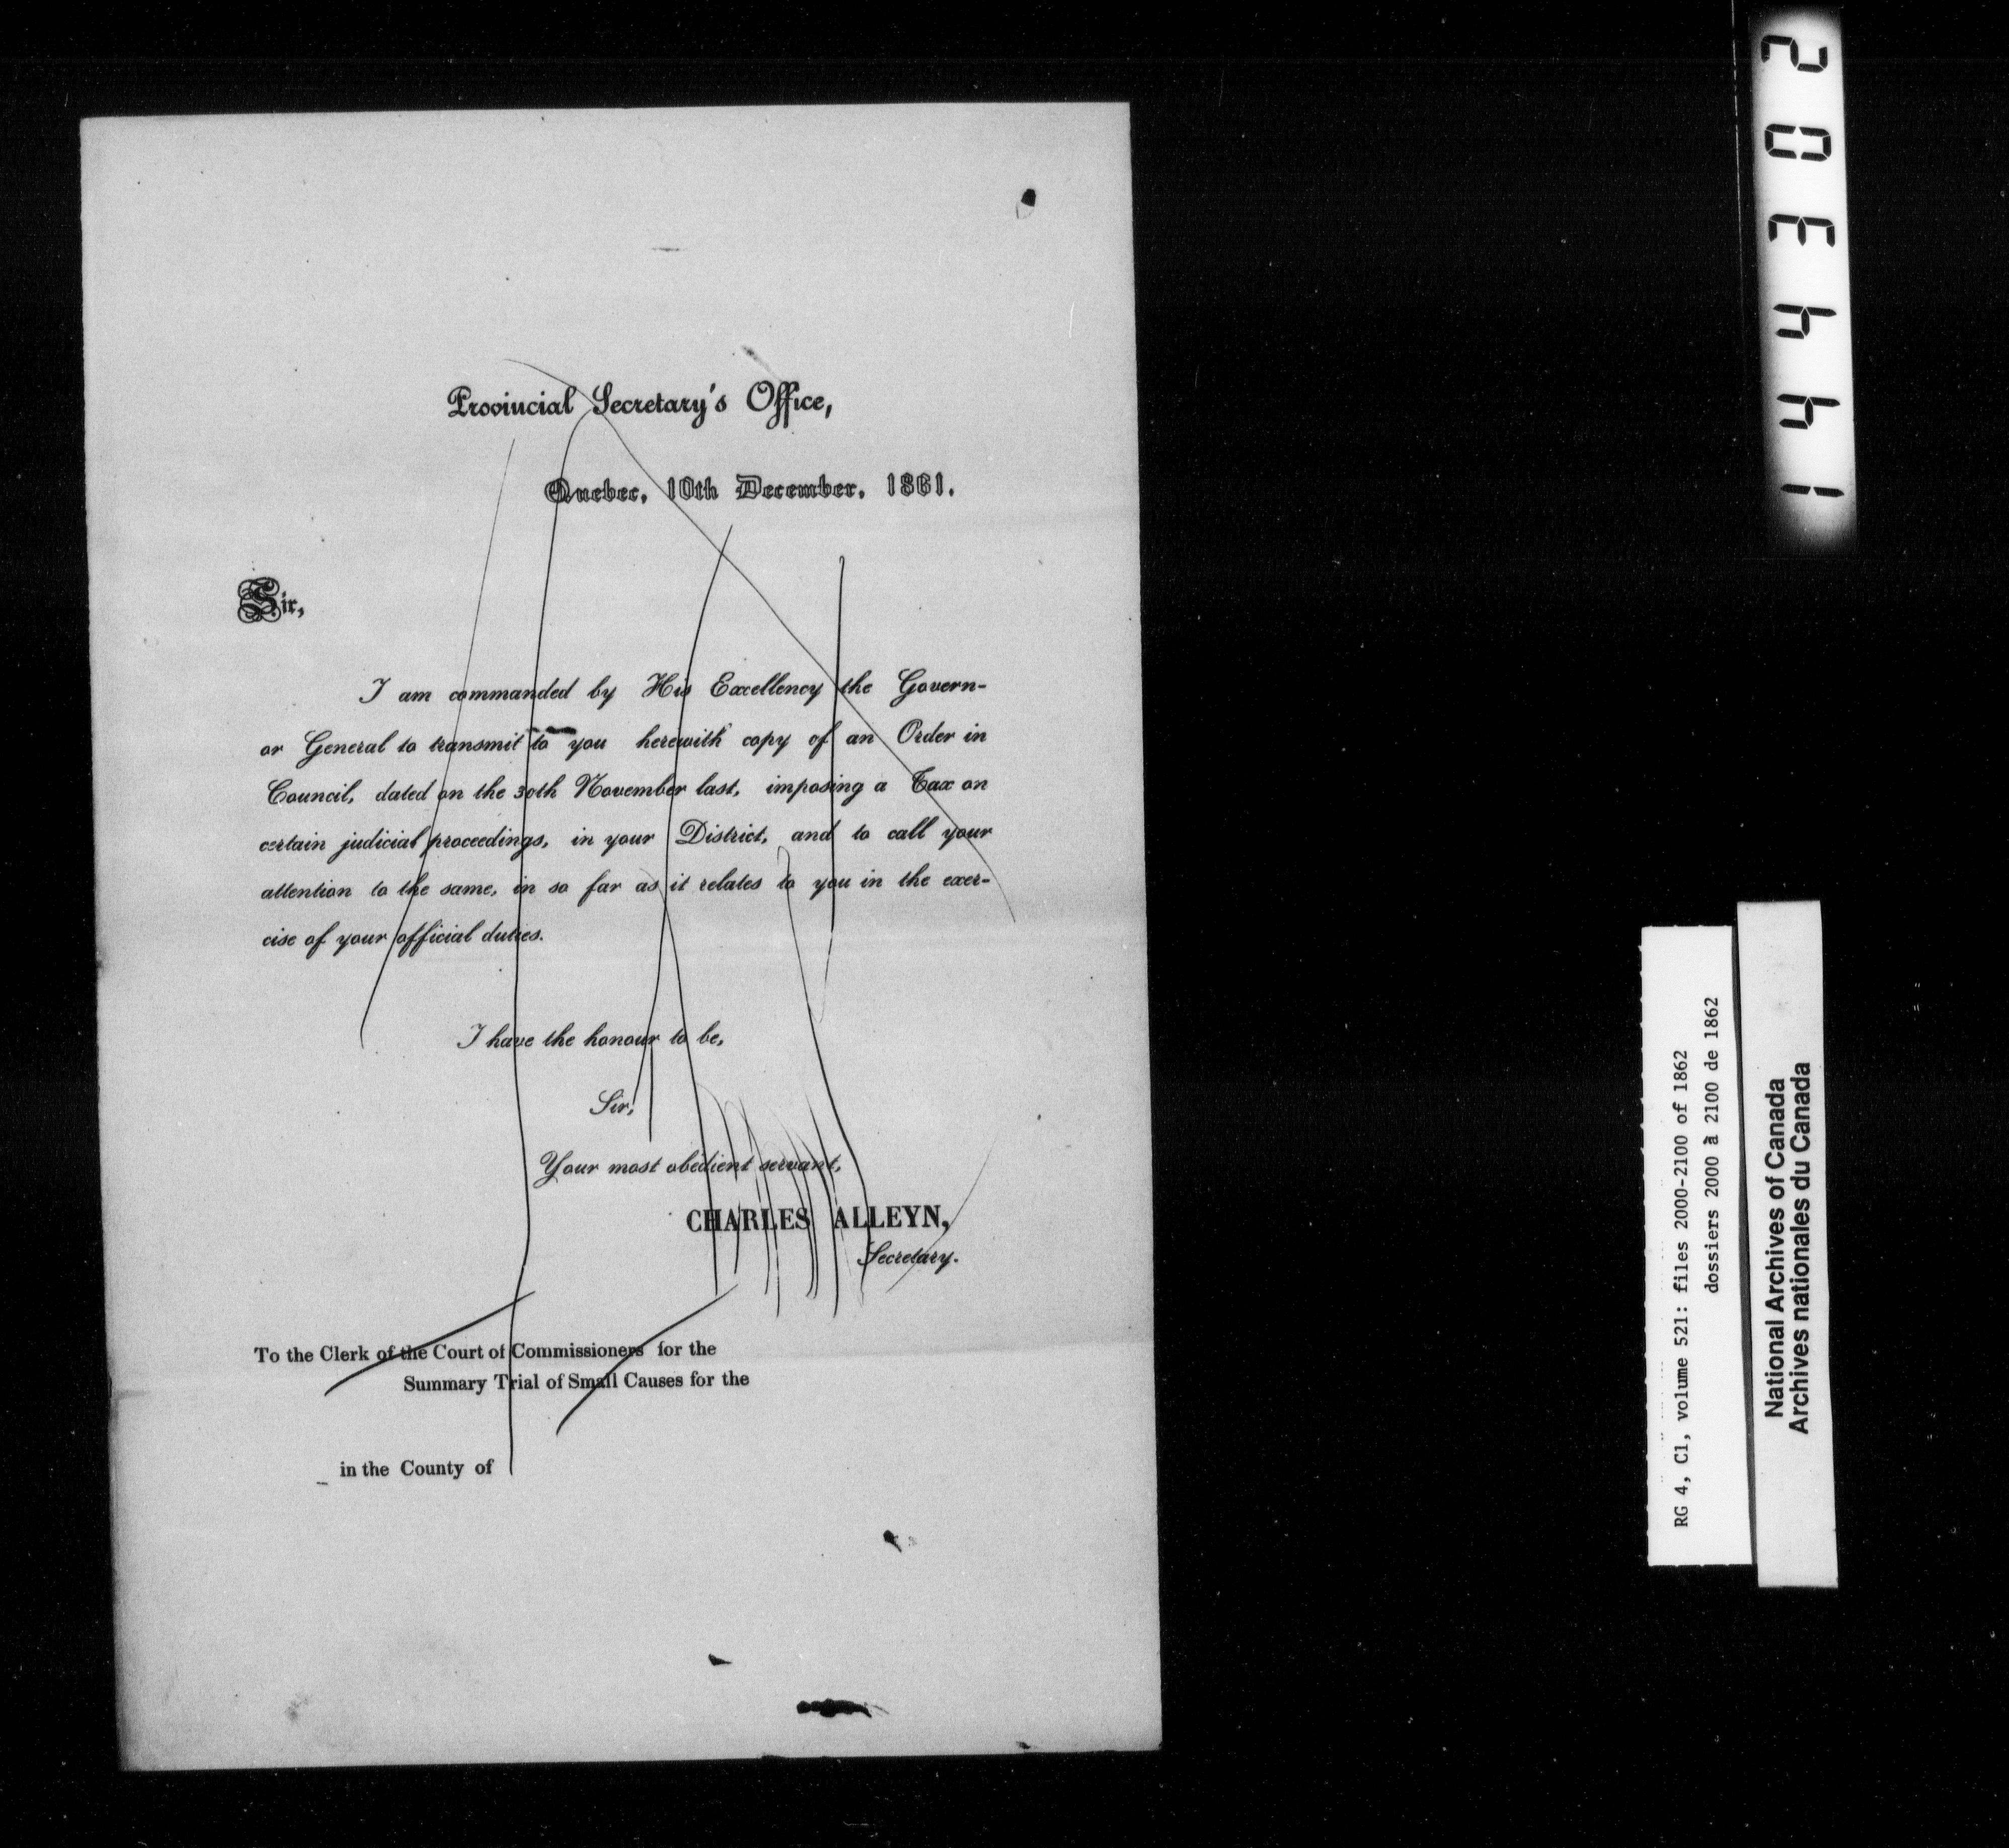 Provincial Secretary's Office,
Quebec, 10th December, 1861.
Sir,
I am commanded by His Excellency the Govern-
or General to transmit to you herewith copy of an Order in
Council, dated on the 30th November last, imposing a Tax on
certain judicial proceedings, in your District, and to call your
attention to the same, in so far as it relates to you in the exer-
cise of your official duties.
I have the honour to be,
Sir,
Your most obedient servant,
CHARLES ALLEYN,
Secretary.
To the Clerk of the Court of Commissioners for the
Summary Trial of Small Causes for the
in the County of
203441
RG 4, C1, volume 521: files 2000-2100 of 1862
dossiers 2000 à 2100 de 1862
National Archives of Canada
Archives nationales du Canada